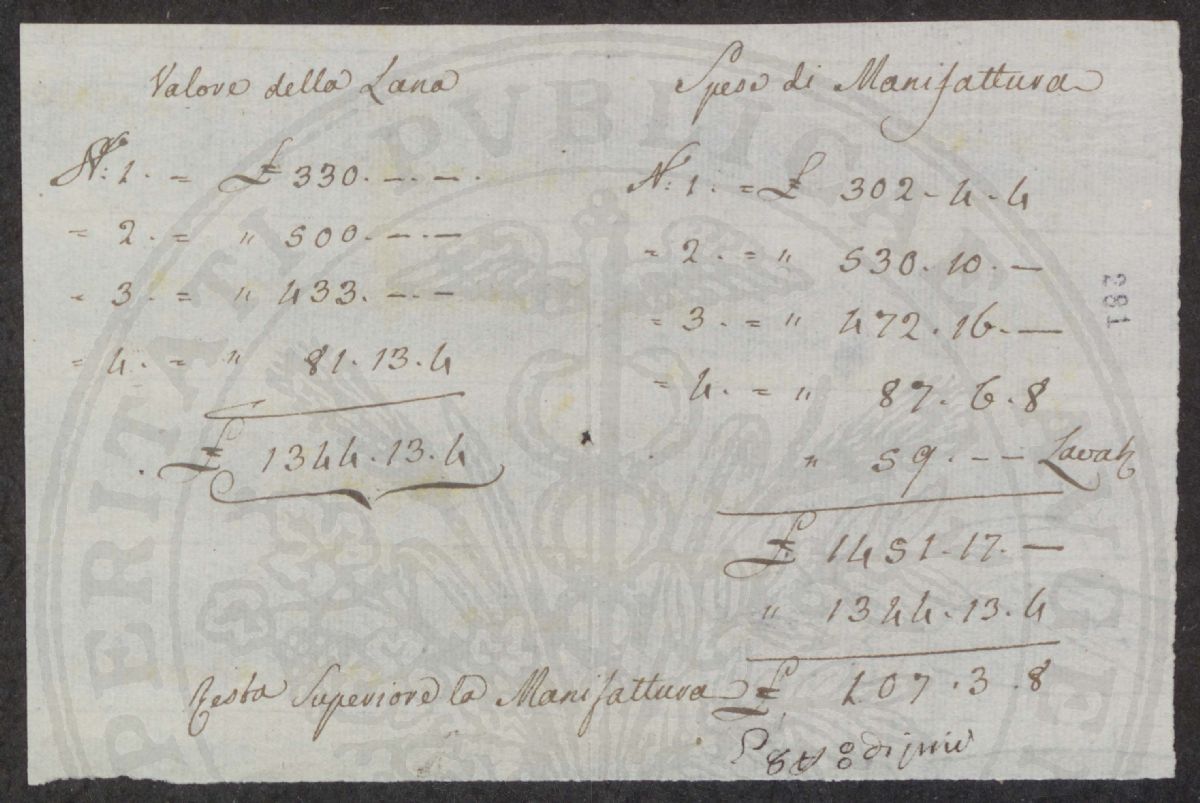 Valore della Lana
N.: 1. = £ 330. —. —.
= 2. = " 500. —. —
= 3. = " 433. —. —
= 4. = " 81. 13. 4
£ 1344. 13. 4
Spese di Manifattura
N.: 1. = £ 302 - 4 - 4
= 2. = " 530. 10. —
= 3. = " 472. 16. —
= 4. = " 87. 6. 8
" 59. — —
£ 1451. 17. —
" 1344. 13. 4
Resta Superiore la Manifattura £ 107. 3. 8
281
PERITATI PVBLICAE